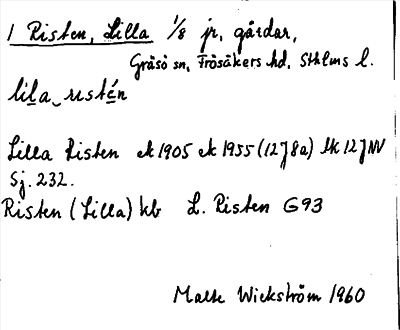 1 Risten, Lilla 1/8 jr, gårdar,
Gräsö sn, Frösåkers hd, Sthlms l.
lila ristén
Lilla Risten ek 1905 ek 1955 (12J8a) lk 12J NV
Sj. 232.
Risten (Lilla) kb L. Risten G93
Malte Wickström 1960